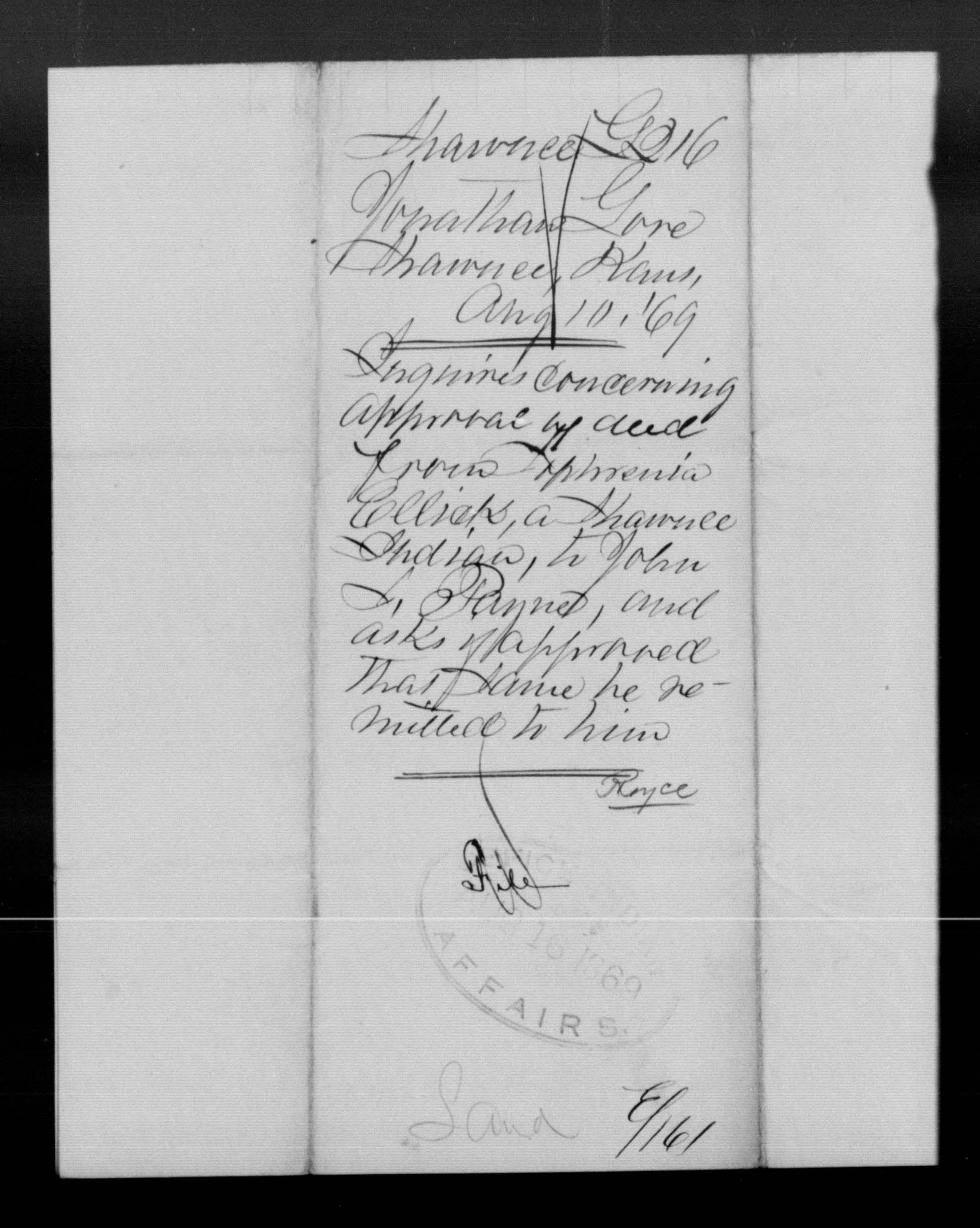 Shawnee G 216
Jonathan Gore
Shawnee, Kans,
Aug 10, '69
Inquires concerning
approval of deed
from Tophrenia
Ellick, a Shawnee
Indian, to John
L. Payne, and
asks if approved
that same be re-
mitted to him
Royce
File
INDIAN
16 1869
AFFAIRS.
Land
E/161